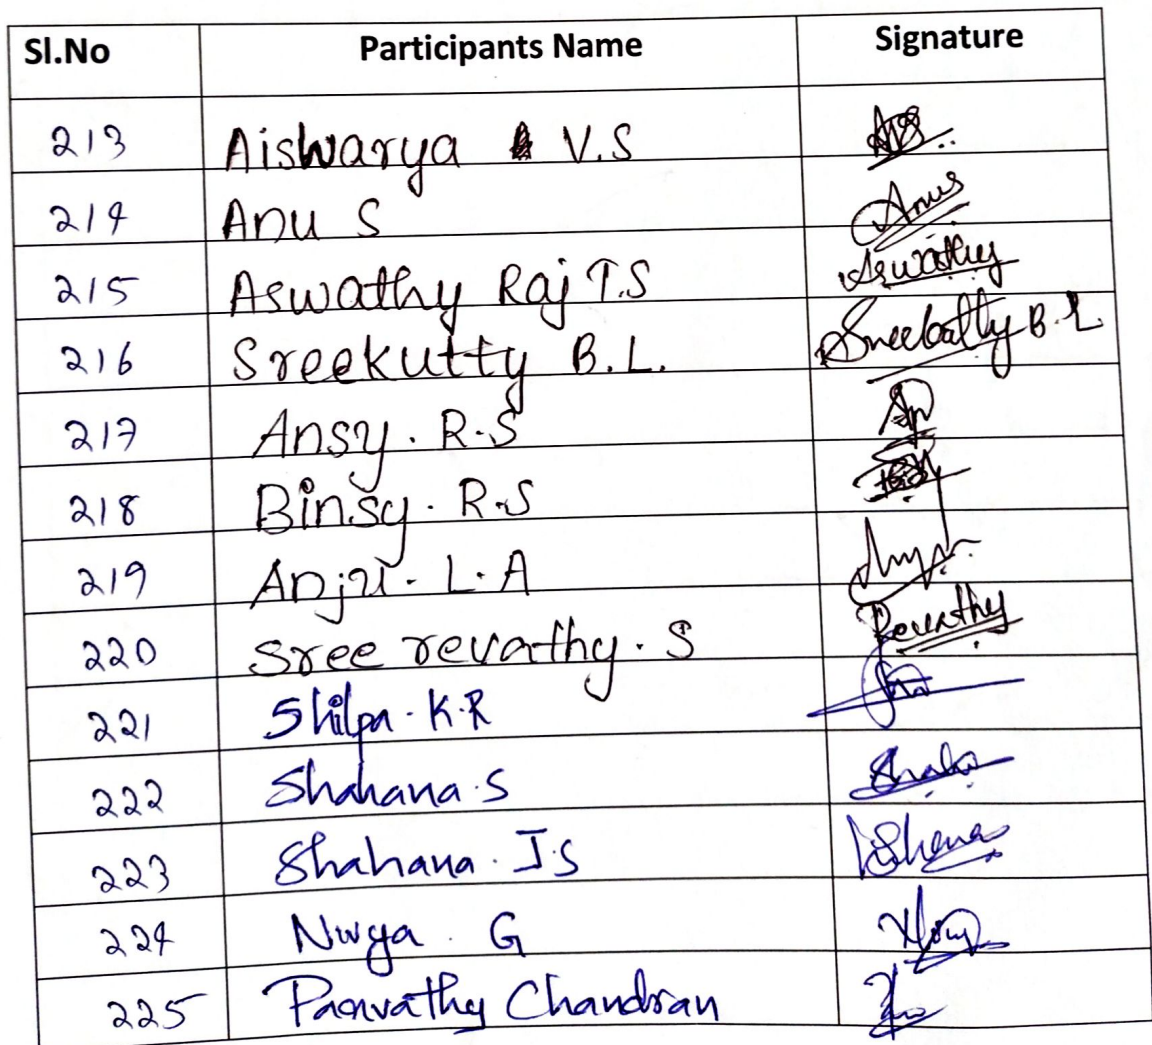 Sl.No Participants Name Signature
213 Aiswarya V.S
214 Anu S Anus
215 Aswathy Raj T.S Aswathy
216 Sreekutty B.L. Sreekutty B.L.
217 Ansy. R.S
218 Binsy. R.S
219 Anju. L. A
220 Sree revathy. S Revathy
221 Shilpa. K.R
222 Shahana. S
223 Shahana. J.S
224 G
225 Parvathy Chandran